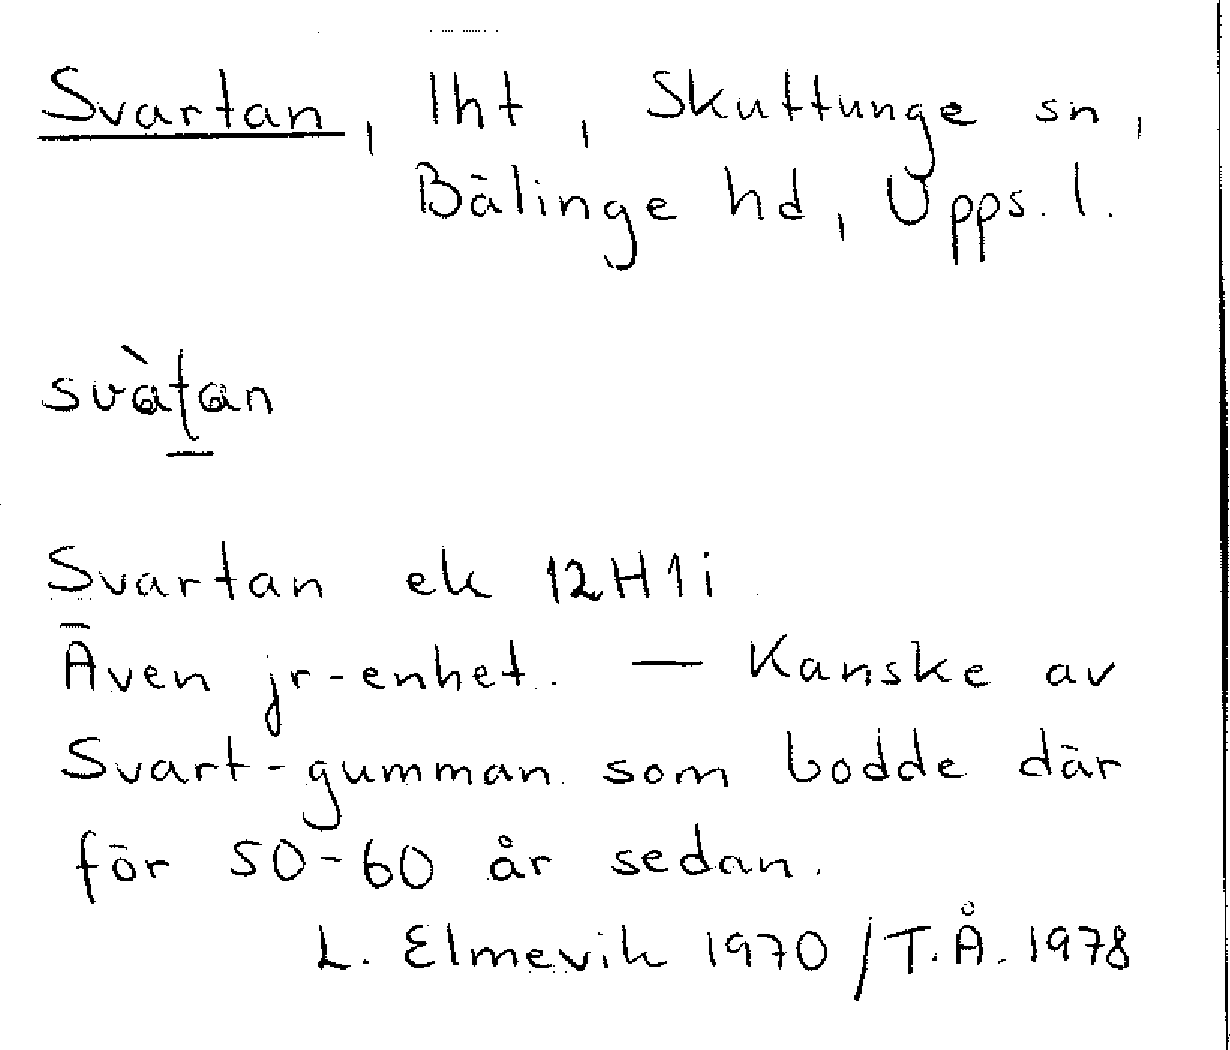 Svartan, lht, Skuttunge sn,
Bälinge hd, Upps. l.
svàʈan
Svartan ek 12H1i
Även jr-enhet. — Kanske av
Svart-gumman som bodde där
för 50-60 år sedan.
L. Elmevik 1970/T.Å. 1978